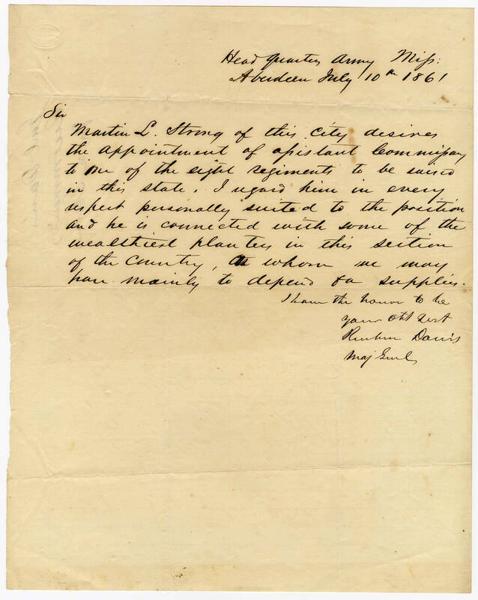 Head quarters Army Miss:
Aberdeen July 10th 1861
Sir
Martin L. Strong of this city desires
the appointment of assistant Commissary
to one of the eight regiments to be raised
in this state. I regard him in every
respect personally suited to the position
and he is connected with some of the
wealthiest planters in this section
of the Country, on whom we may
have mainly to depend for supplies.
I have the honor to be
your Obt Servt
Reuben Davis
Maj Genl